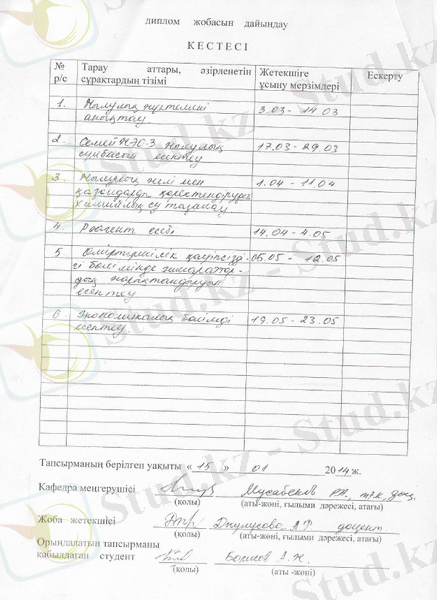 диплом жобасын дайындау
КЕСТЕСІ
№ р/с
Тарау аттары, әзірленетін сұрақтардың тізімі
Жетекшіге ұсыну мерзімдері
Ескерту
1. Жылулық жүктемені анықтау 3.03 - 14.03
2. Семей ЖЭО-3 жылулық сұлбасын есептеу 17.03 - 29.03
3. Жылулық желі мен қазандарды қоректендіруге химиялық су тазалау 1.04 - 11.04
4. есеп 14.04 - 4.05
5 Өміртіршілік қауіпсіздігі бөлімінде ғимараттардың есептеу 05.05 - 12.05
6 Экономикалық бөлімді есептеу 19.05 - 23.05
Тапсырманың берілген уақыты « 15 » 01 2014 ж.
Кафедра меңгерушісі Мусабеков РА, т.ғ.к, доц.
(қолы) (аты-жөні, ғылыми дәрежесі, атағы)
Жоба жетекшісі доцент
(қолы) (аты-жөні, ғылыми дәрежесі, атағы)
Орындалатын тапсырманы
қабылдаған студент
(қолы) (аты -жөні)
Stud.kz - Stud.kz